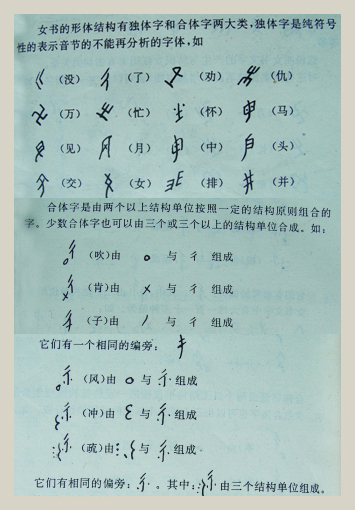 女书的形体结构有独体字和合体字两大类,独体字是纯符号
性的表示音节的不能再分析的字体,如
(没) (了) (劝) (仇)
(万) (忙) (怀) (马)
(见) (月) (中) (头)
(交) (女) (排) (并)
合体字是由两个以上结构单位按照一定的结构原则组合的
字。少数合体字也可以由三个或三个以上的结构单位合成。如:
(吹)由 与 组成
(肯)由 与 组成
(子)由 与 组成
它们有一个相同的编旁:
(风)由 与 组成
(冲)由 与 组成
(疏)由 与 组成
它们有相同的偏旁: 。其中: 由三个结构单位组成。